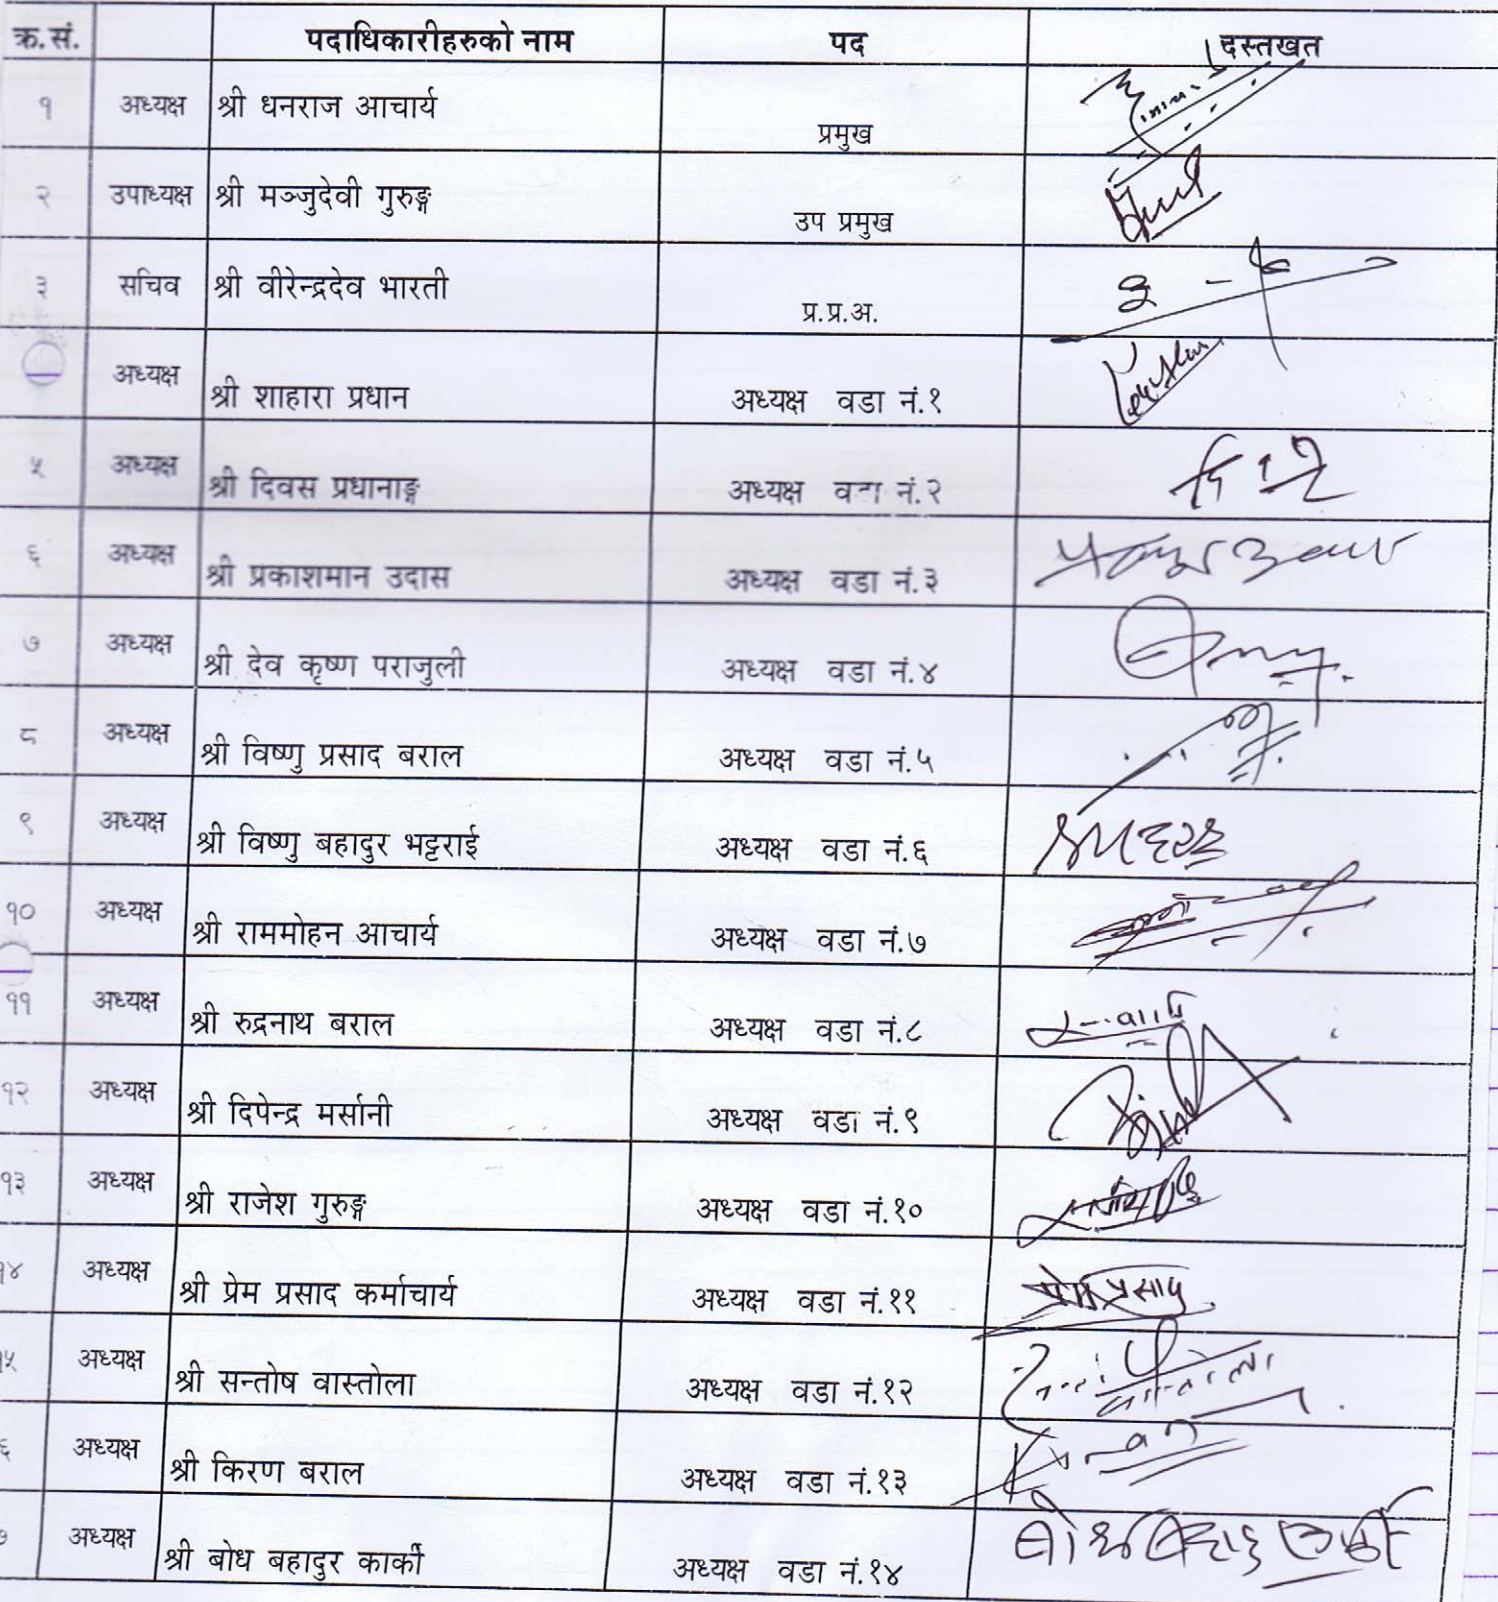 क्र.सं. पदाधिकारीहरुको नाम पद दस्तखत
१ अध्यक्ष श्री धनराज आचार्य प्रमुख
२ उपाध्यक्ष श्री मञ्जुदेवी गुरुङ्ग उप प्रमुख
३ सचिव श्री वीरेन्द्रदेव भारती प्र.प्र.अ.
अध्यक्ष श्री शाहारा प्रधान अध्यक्ष वडा नं.१
५ अध्यक्ष श्री दिवस प्रधानाङ्ग अध्यक्ष वडा नं.२
६ अध्यक्ष श्री प्रकाशमान उदास अध्यक्ष वडा नं.३
७ अध्यक्ष श्री देव कृष्ण पराजुली अध्यक्ष वडा नं.४
८ अध्यक्ष श्री विष्णु प्रसाद बराल अध्यक्ष वडा नं.५
९ अध्यक्ष श्री विष्णु बहादुर भट्टराई अध्यक्ष वडा नं.६
१० अध्यक्ष श्री राममोहन आचार्य अध्यक्ष वडा नं.७
११ अध्यक्ष श्री रुद्रनाथ बराल अध्यक्ष वडा नं.८
१२ अध्यक्ष श्री दिपेन्द्र मर्सानी अध्यक्ष वडा नं.९
१३ अध्यक्ष श्री राजेश गुरुङ्ग अध्यक्ष वडा नं.१०
१४ अध्यक्ष श्री प्रेम प्रसाद कर्माचार्य अध्यक्ष वडा नं.११ प्रेम प्रसाद
१५ अध्यक्ष श्री सन्तोष वास्तोला अध्यक्ष वडा नं.१२
६ अध्यक्ष श्री किरण बराल अध्यक्ष वडा नं.१३
७ अध्यक्ष श्री बोध बहादुर कार्की अध्यक्ष वडा नं.१४ बोध बहादुर कार्की